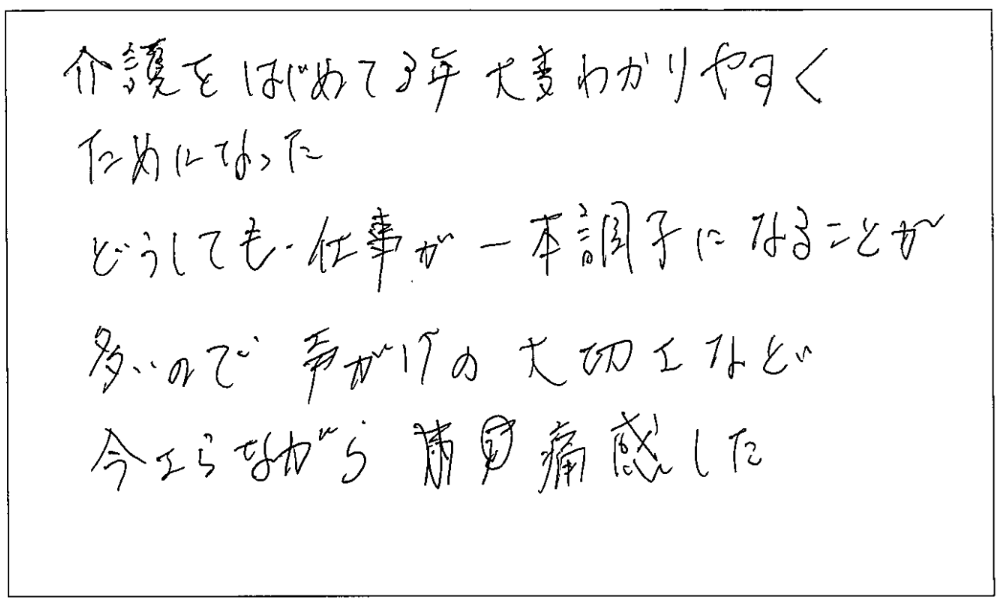 介護をはじめて3年 大変わかりやすく
ためになった
どうしても仕事が一本調子になることが
多いので 声がけの大切さなど
今さらながら 痛感した